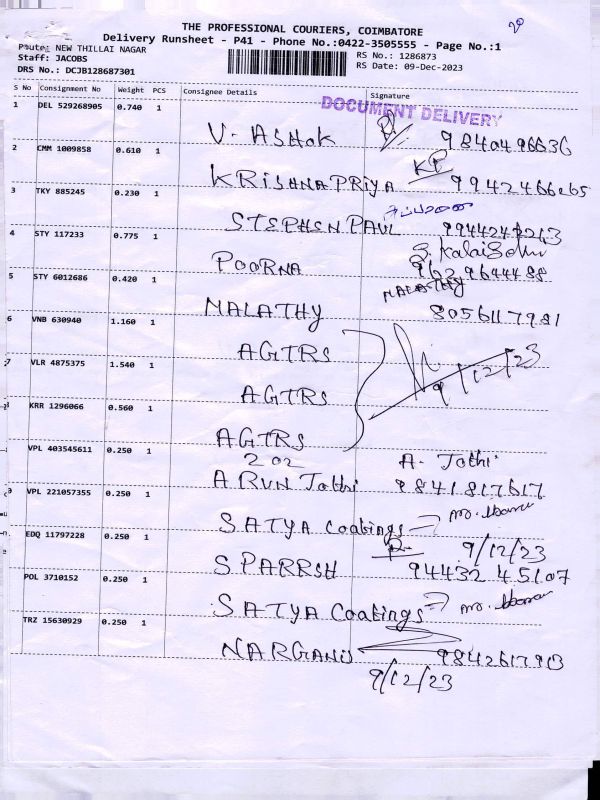 20
THE PROFESSIONAL COURIERS, COIMBATORE
Delivery Runsheet - P41 - Phone No.:0422-3505555 - Page No.:1
Route: NEW THILLAI NAGAR
RS No.: 1286873
Staff: JACOBS
RS Date: 09-Dec-2023
DRS No.: DCJB128687301
S No Consignment No Weight PCS Consignee Details Signature
DOCUMENT DELIVERY
1 DEL 529268905 0.740 1
V. ASHOK 9840496636
2 CMM 1009858 0.610 1
KRISHNAPRIYA KP 9942466265
3 TKY 885245 0.230 1
STEPHEN PAUL
4 STY 117233 0.775 1
POORNA
5 STY 6012686 0.420 1
MALATHY MALATHY 8056117981
6 VNB 630940 1.160 1
AGTRS
7 VLR 4875375 1.540 1
AGTRS 9/12/23
KRR 1296066 0.560 1
AGTRS
202
VPL 403545611 0.250 1
A. Jothi
ARUN Jothi 9841817617
9 VPL 221057355 0.250 1
SATYA Coatings
9/12/23
EDQ 11797228 0.250 1
S.PARRSH 94432 45107
POL 3710152 0.250 1
SATYA Coatings
TRZ 15630929 0.250 1
9842617913
9/12/23